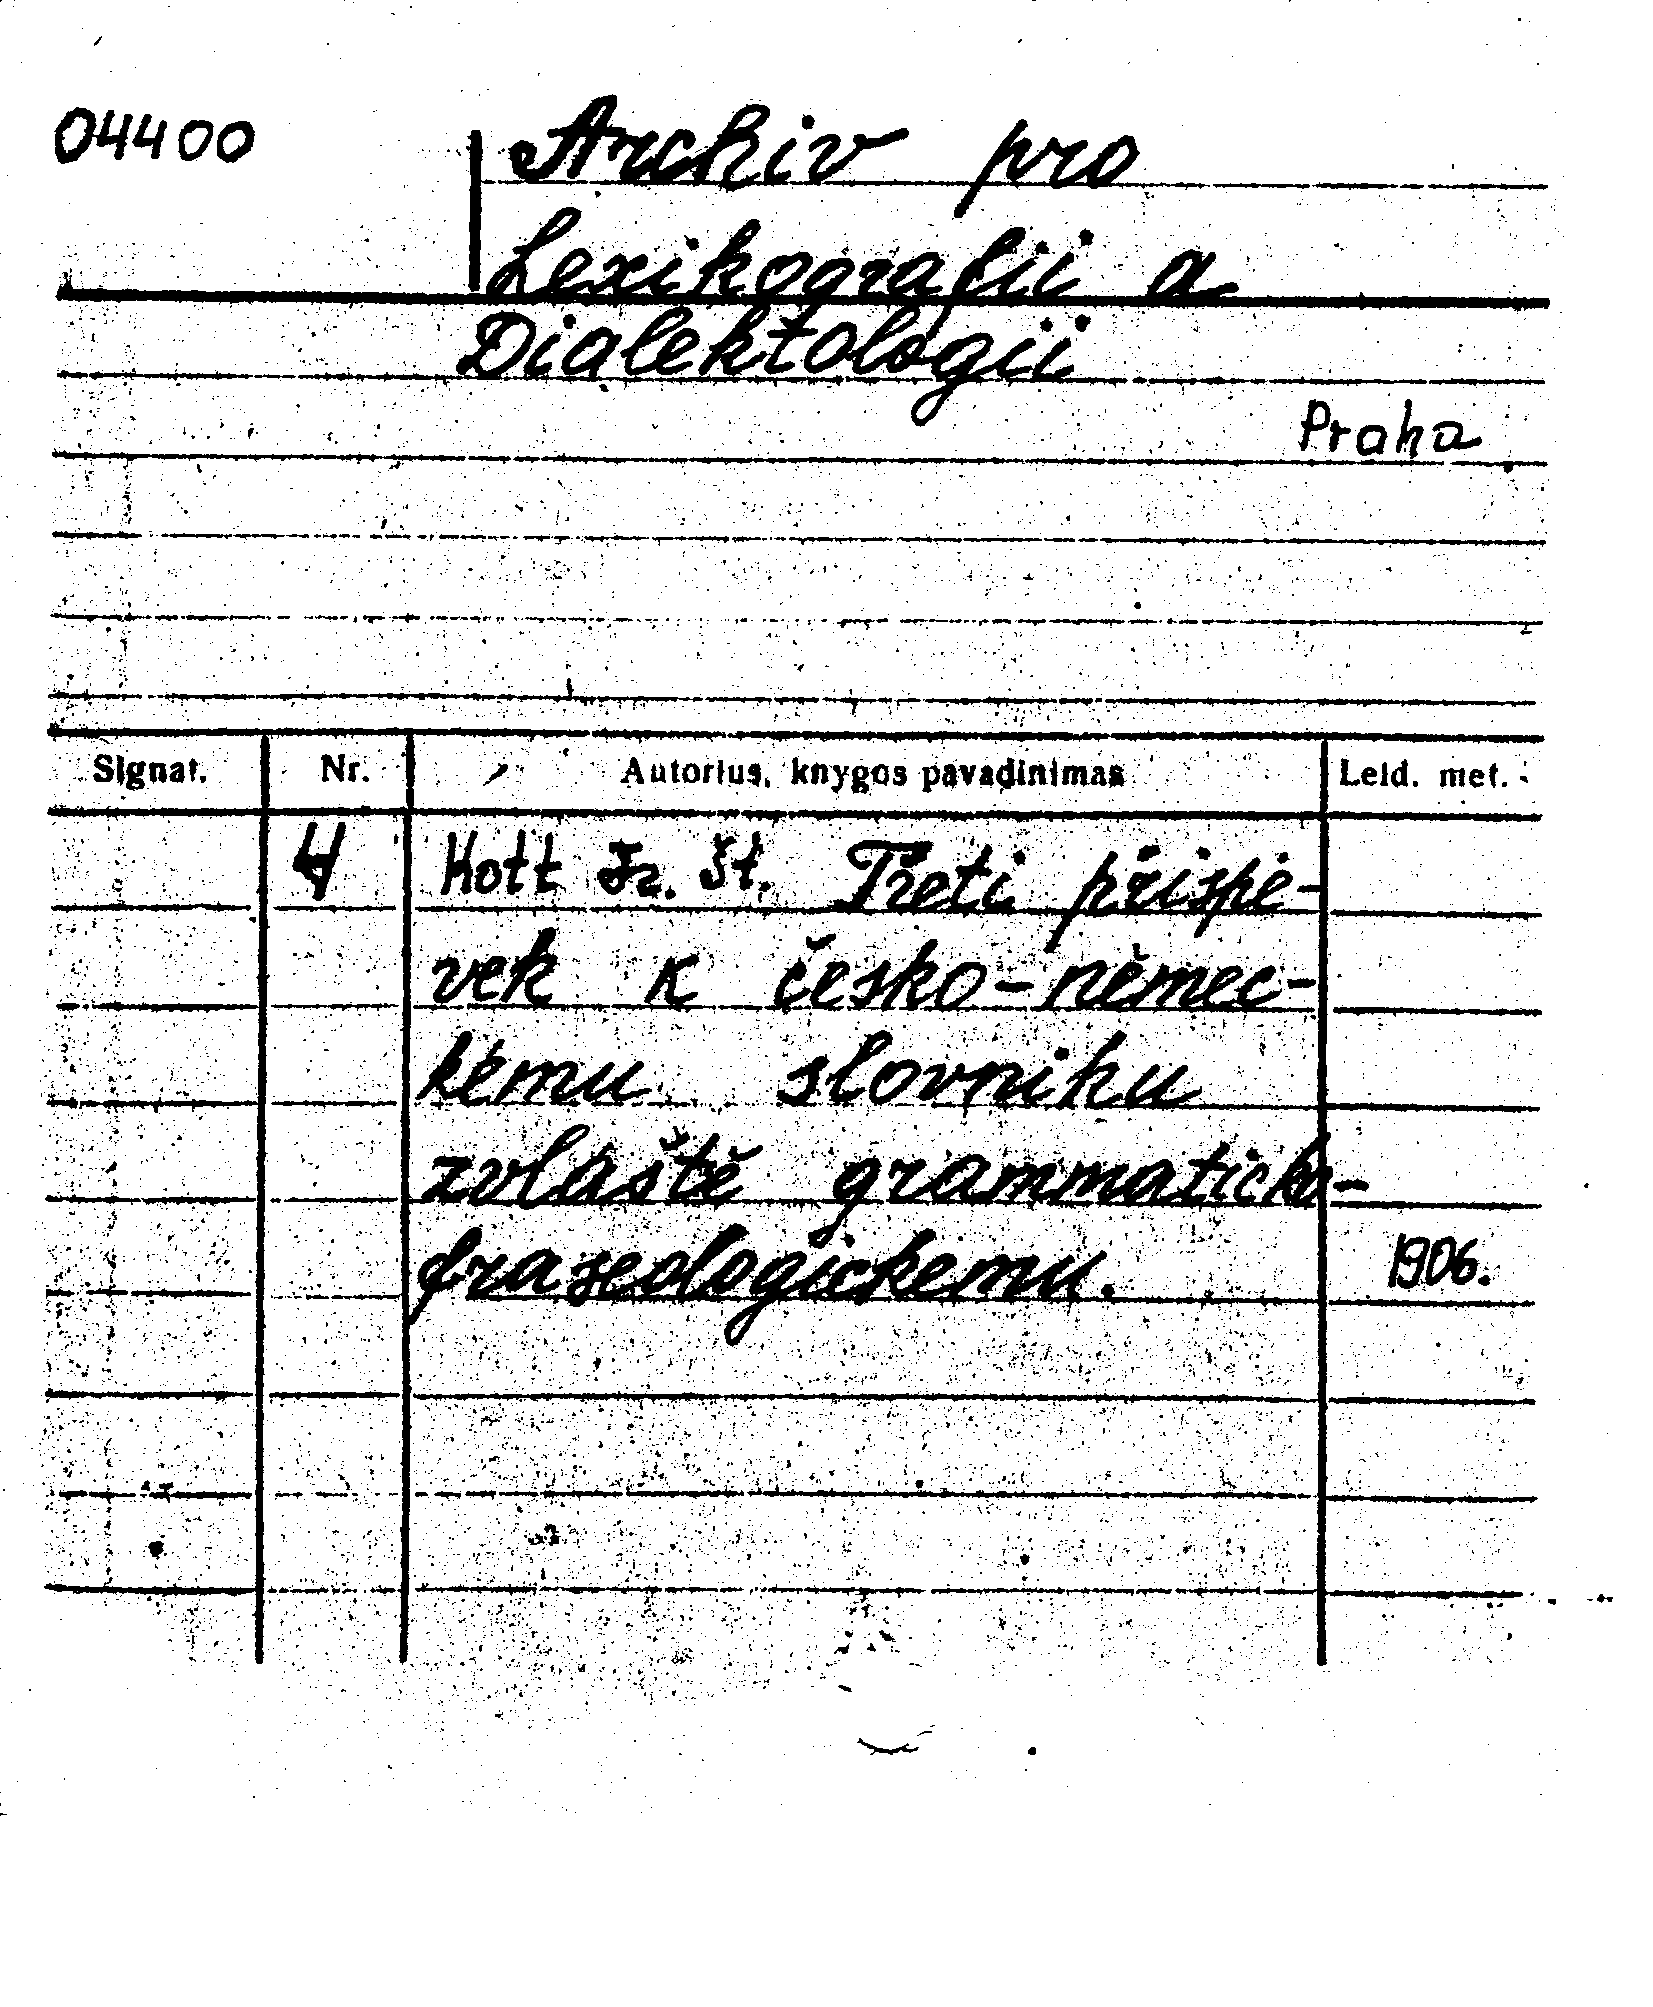 04400
Archiv pro
Lexikografii a
Dialektologii
Praha
Signat. Nr. Autorius, knygos pavadinimas Leid. met.
4 Kott Fr. Št. Třeti přispě-
vek k česko-němec-
kému slovniku
zvláště grammaticko-
fraseologickemu. 1906.